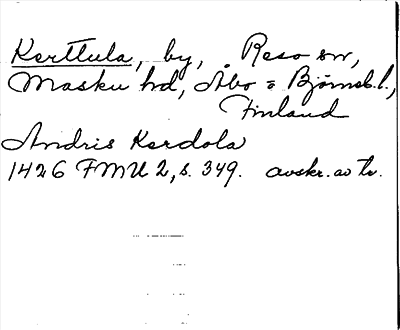 Kerttula, by, Reso sn,
Masku hd, Åbo o Björneb. l.,
Finland
Andris Kerdola
1426 FMU 2, s. 349. avskr. av tr.